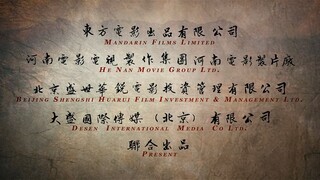 東方電影出品有限公司
MANDARIN FILMS LIMITED
河南電影電視製作集團河南電影製片廠
HE NAN MOVIE GROUP LTD.
北京盛世華銳電影投資管理有限公司
BEIJING SHENGSHI HUARUI FILM INVESTMENT & MANAGEMENT LTD.
大盛國際傳媒（北京）有限公司
DESEN INTERNATIONAL MEDIA CO LTD.
聯合出品
PRESENT